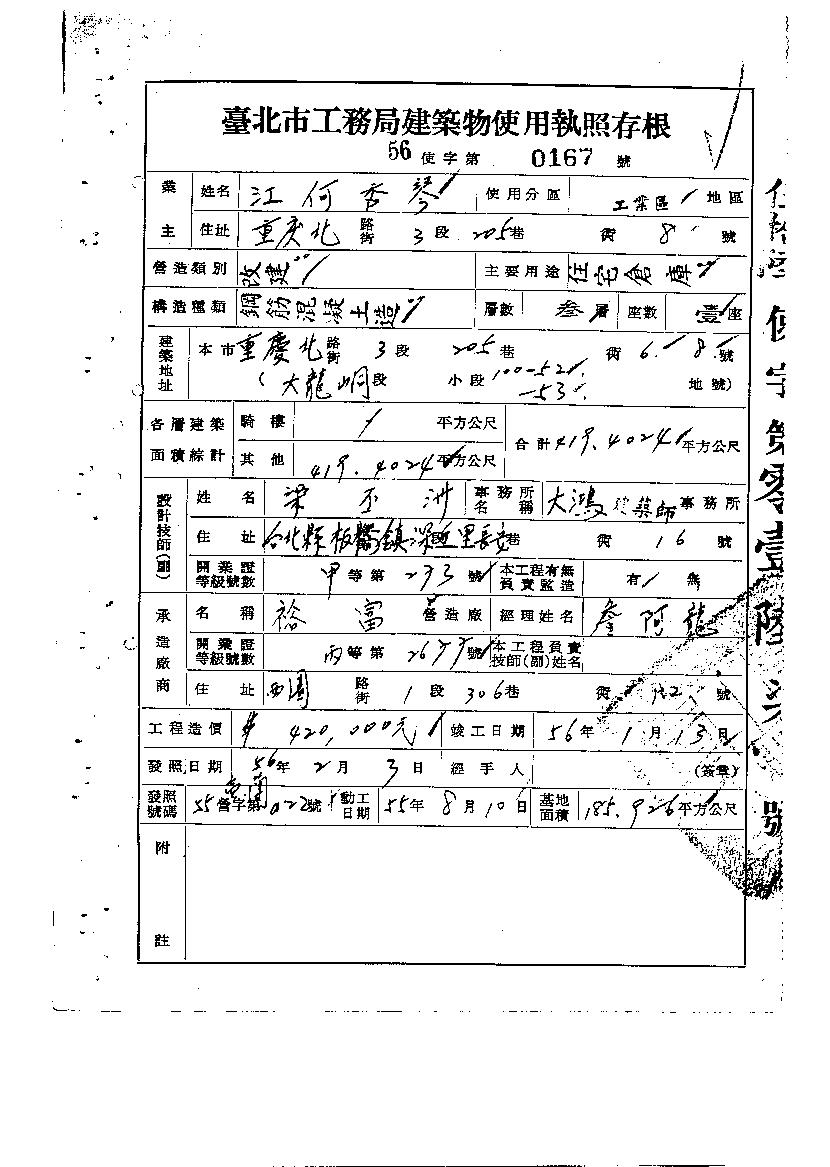 臺北市工務局建築物使用執照存根
56 使字第 0167 號
業主 姓名 江何杏琴 使用分區 工業區 地區
住址 重庆北路街 3段 205巷 衖 8 號
營造類別 改建 主要用途 住宅倉庫
構造種類 鋼筋混凝土造 層數 叁層 座數 壹座
建築地址 本市重慶北路街 3段 205巷 衖 6. 8.號
(大龍峒段 小段 100-52 -53 地號)
各層建築面積綜計 騎樓 平方公尺 合計 419.4024 平方公尺
其他 419.4024 平方公尺
設計技師(副) 姓名 梁丕洲 事務所名稱 大鴻建築師事務所
住址 台北縣板橋鎮深丘里長安巷 衖 16 號
開業證等級號數 甲等第 273 號 本工程有無負責監造 有 無
承造廠商 名稱 裕富營造廠 經理姓名 阿龍
開業證等級號數 丙等第 號 本工程負責技師(副)姓名
住址 西園路街 1段 306巷 衖 號
工程造價 420,000元 竣工日期 56年 1月 13日
發照日期 56年 2月 3日 經手人 (簽章)
發照號碼 55營字第 022號 動工日期 55年 8月 10日 基地面積 185.926平方公尺
附註
使字第零壹陸 號